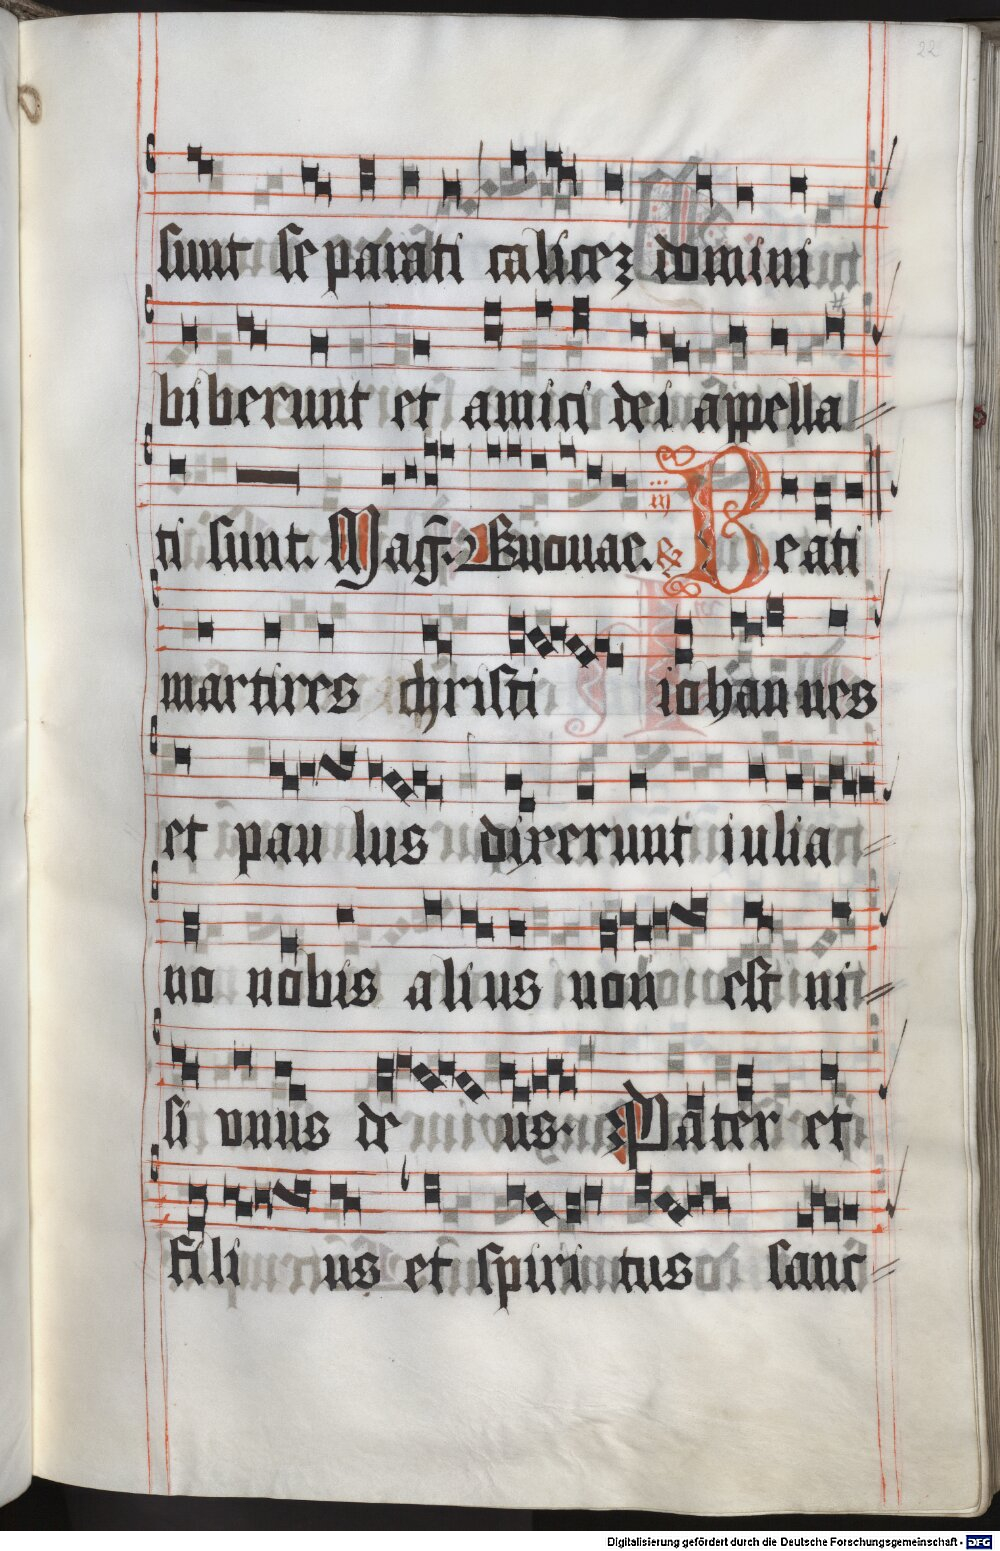 22
sunt se parati calicez domini
biberunt et amici dei appella
ti sunt. Mag. Euouae. Beati
martires christi iohannes
et paulus dixerunt iulia
no nobis alius non est ni
si unus deus. Pater et
filius et spiritus sanc
Digitalisierung gefördert durch die Deutsche Forschungsgemeinschaft - DFG